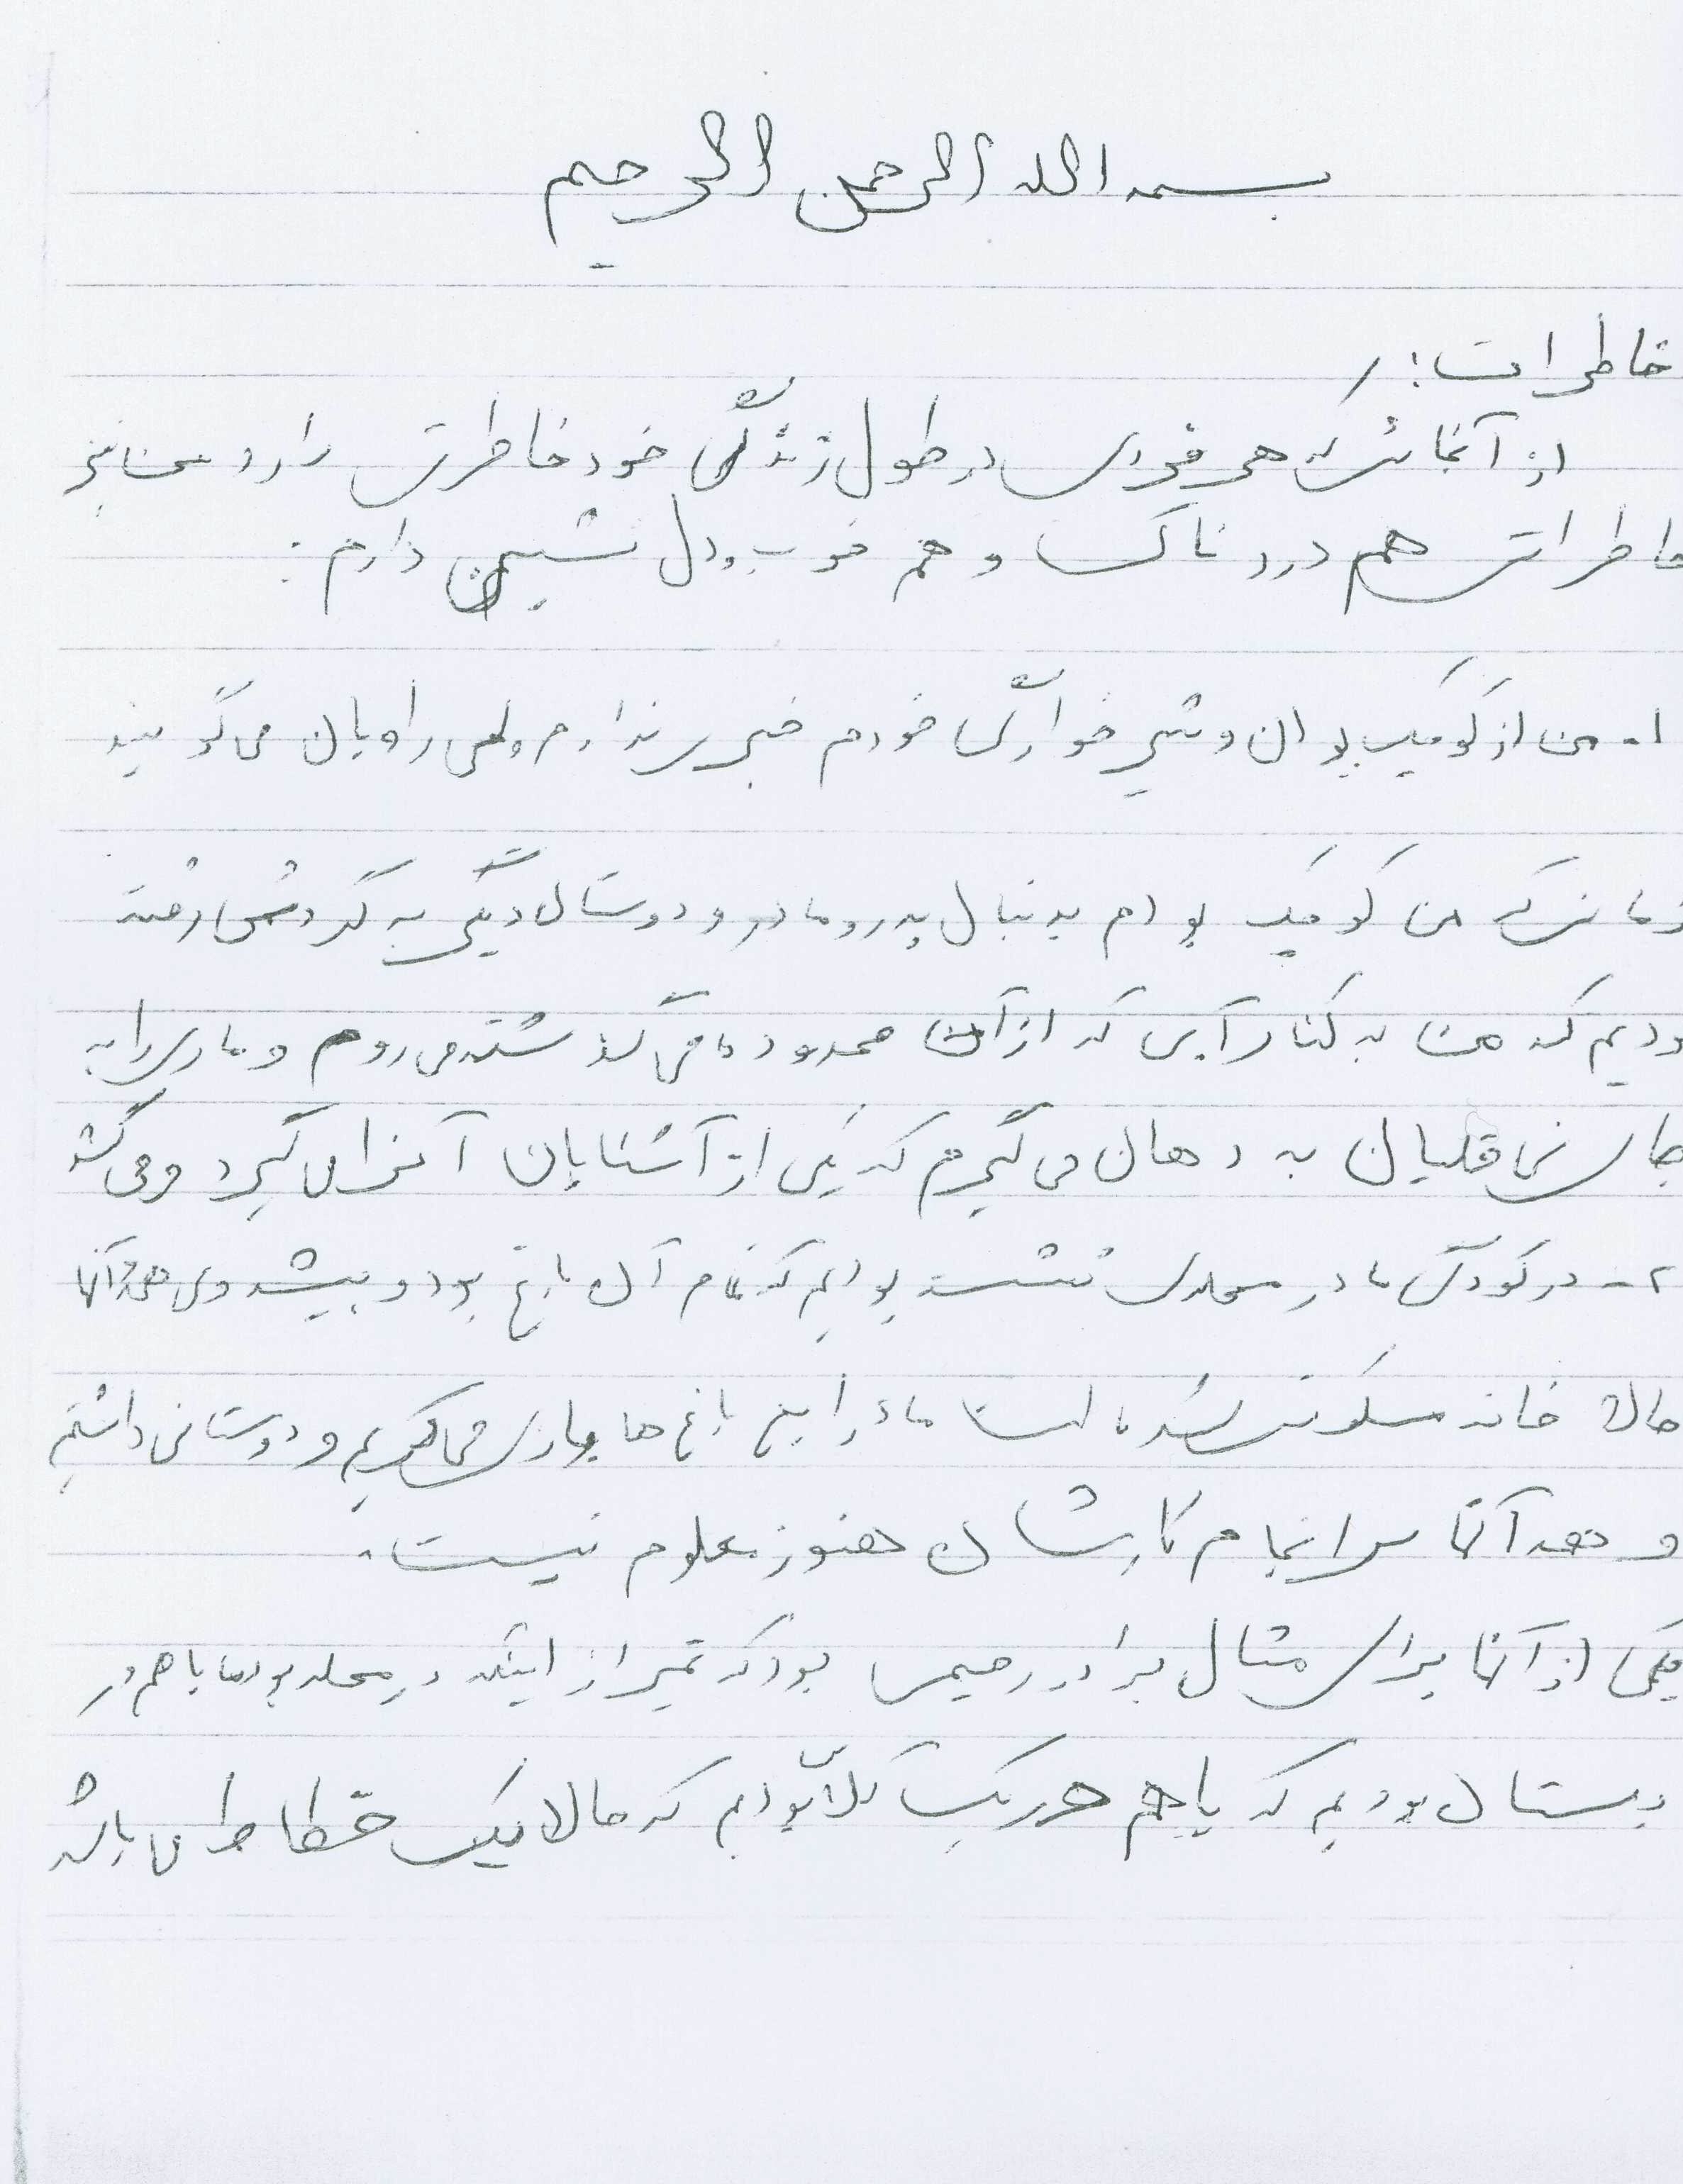 بسمه الله الرحمن الرحیم
خاطرات: /
از آنجائیکه هر فردی در طول زندگی خود خاطراتی دارد من نیز
خاطراتی هم دردناک و هم خوب و دل نشین دارم:
۱- من از کوچک بودن و شیر خوارگی خودم خبری ندارم ولی راویان می گویند
زمانیکه من کوچک بودم به دنبال پدر و مادر و دوستان دیگر به گردش رفته
بودیم که من به کنار آبی که از آن محدوده می گذشته می روم و ماری را به
جای نی قلیان به دهان می گیرم که یکی از آشنایان آنرا می گیرد و می کشد
۲- در کودکی ما در محله ی نشسته بودیم که تمام آن باغ بود و بیشه ولی همه آنها
حالا خانه مسکونی شده است ما در این باغ ها بازی می کردیم و دوستانی داشتیم
و همه آنها سرانجام کارشان هنوز معلوم نیست.
یکی از آنها برای مثال برادر رحیمی بود که غیر از اینکه در محله بود ما با هم در
دبستان بودیم که با هم در یک کلاس بودیم که حالا یک خطاط می باشد